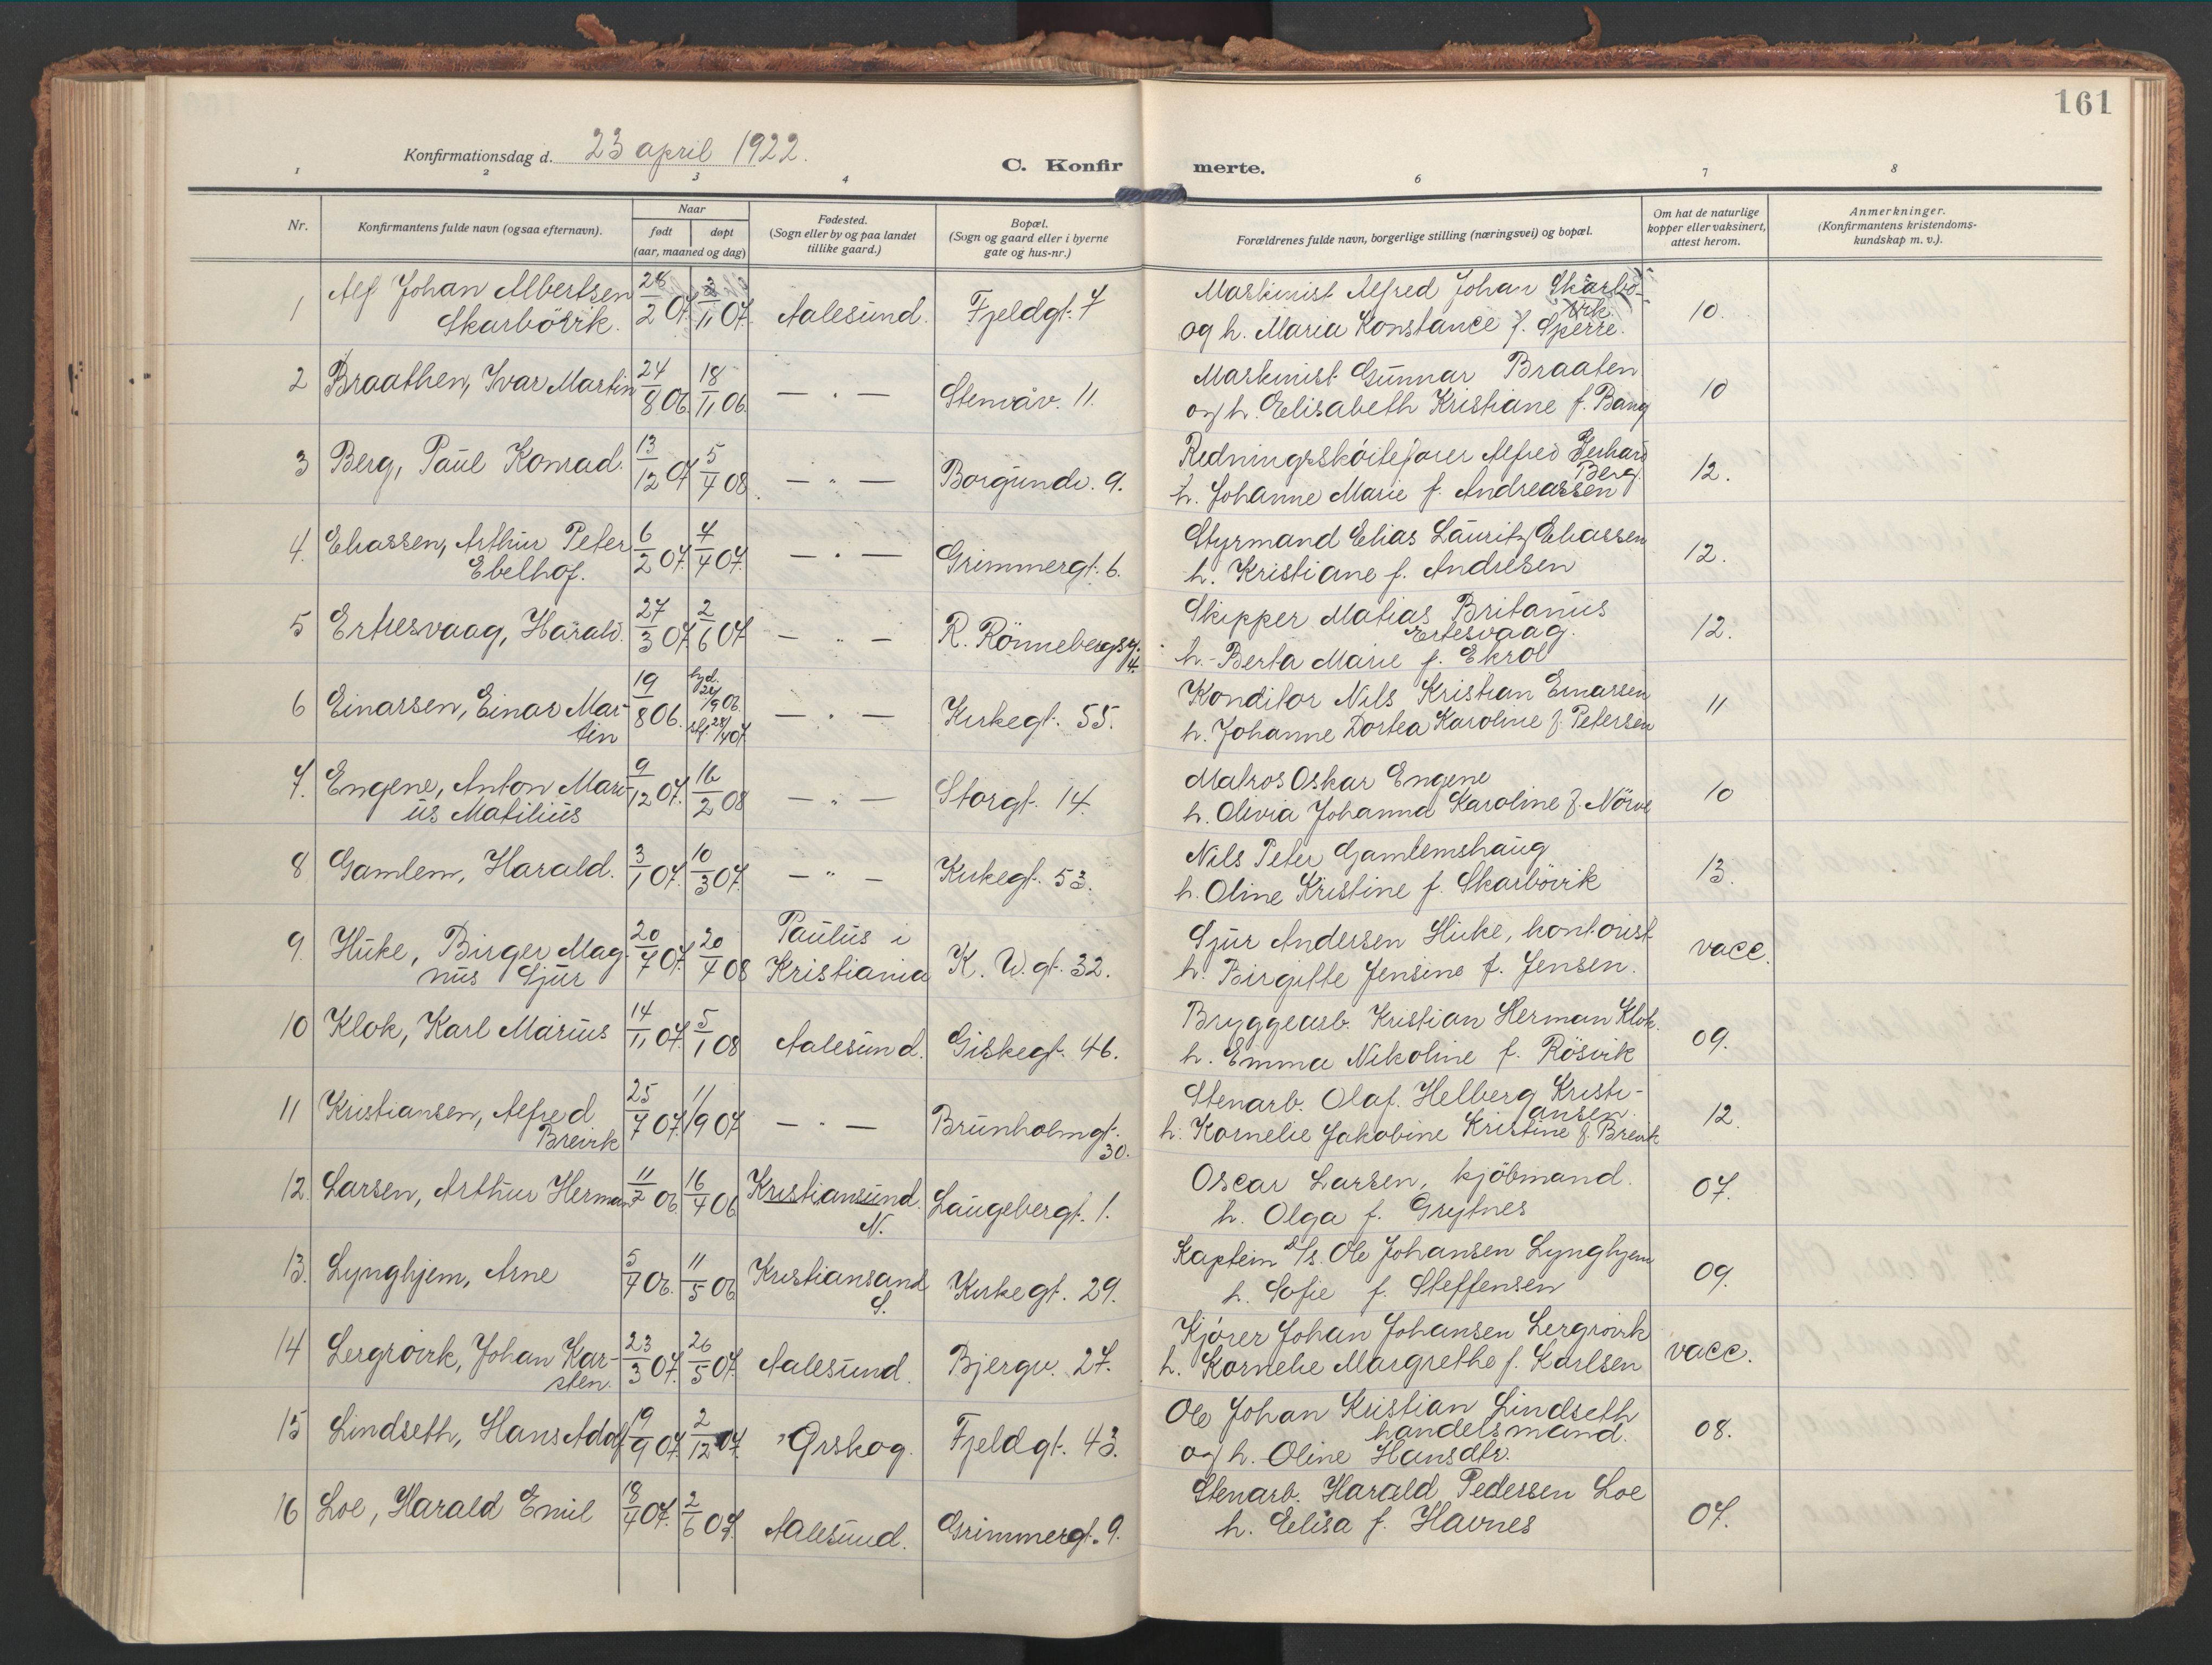 161
Konfirmationsdag d. 23 april 1922.
C. Konfirmerte.
1 2 3 4 6 7 8
Nr. Konfirmantens fulde navn (ogsaa efternavn). Naar født døpt (aar, maaned og dag) Fødested. (Sogn eller by og paa landet tillike gaard.) Bopæl. (Sogn og gaard eller i byerne gate og hus-nr.) Forældrenes fulde navn, borgerlige stilling (næringsvei) og bopæl. Om hat de naturlige kopper eller vaksinert, attest herom. Anmerkninger. (Konfirmantens kristendoms-kundskap m. v.).
1 Alf Johan Albertsen 28/2 07. 3/11 07. Aalesund. Fjeldgt. 7 Maskinist Alfred Johan Skarbö- 10.
Skarbövik. vik.
og h. Maria Konstance f. Sperre.
2 Braathen, Ivar Martin 24/8 06. 18/11 06. — " — Stenvåv. 11. Maskinist Gunnar Braaten 10
og h. Elisabeth Kristiane f. Bang
3 Berg, Paul Konrad. 13/12 07 5/4 08. — " — Borgundv. 9. Redningsskóitefører Alfred Gerhard 12.
Berg.
h. Johanne Marie f. Andreassen
4. Eliassen, Arthur Peter 6/2 07. 7/4 07. — " — Grimmergt. 6. Styrmand Elias Lauritz Eliassen 12.
Ebelhof. h. Kristiane f. Andresen
5 Ertresvaag, Harald. 27/3 07. 2/6 07 — " — R. Rönnebergsg. 4. Skipper Matias Britanus 12.
Ertesvaag.
h. Berta Marie f. Ekrol
6 Einarssen, Einar Mar- 19/8 06. hjd. 24/9 06. — " — Kirkegt. 55. Konditor Nils Kristian Einarssen 11
tin stf. 28/4 07. h. Johanne Dortea Karoline f. Petersen
7. Engene, Anton Mari- 9/12 07. 16/2 08 — " — Storgt. 14. Matros Oskar Engene 10
us Matilius h. Olivia Johanna Karoline f. Nörve
8 Gamlem, Harald. 3/1 07. 10/3 07. — " — Kirkegt. 53. Nils Peter Gamlemshaug 13.
h. Oline Kristine f. Skarbövik
9. Huke, Birger Mag- 20/7 07. 20/4 08 Paulus i Kristiania K. W. gt. 32. Sjur Andersen Huke, kontorist vacc.
nus Sjur h. Birgitte Jensine f. Jensen.
10 Klok, Karl Marius 14/11 07. 5/1 08 Aalesund. Giskegt. 46. Bryggearb. Kristian Herman Klok. 09.
h. Emma Nikoline f. Rösvik
11 Kristiansen, Alfred 25/7 07. 1/9 07 — " — Brunholmgt. 30. Stenarb. Olaf Helberg Kristi- 12.
Breivik ansen.
h. Kornelie Jakobine Kristine f. Brevik
12. Larsen, Arthur Herman 11/2 06. 16/4 06 Kristiansund. N. Laugebergt. 1. Oscar Larsen, kjöbmand. 07.
h. Olga f. Grytnes
13. Lynghjem, Arne 5/4 06. 11/5 06 Kristiansand S. Kirkegt. 29. Kaptein D/S. Ole Johansen Lynghjem 09.
h. Sofie f. Steffensen
14 Lergrovik, Johan Kar- 23/3 07. 26/5 07. Aalesund. Bjergv. 27. Kjører Johan Johansen Lergrovik vacc.
sten. h. Kornelie Margrethe f. Karlsen
15 Lindseth, Hans Adolf 19/9 07. 2/12 07. Ørskog. Fjeldgt. 43. Ole Johan Kristian Lindseth 08.
handelsmand.
og h. Oline Hansdtr.
16 Loe, Harald Emil 18/4 07. 2/6 07. Aalesund. Grimmergt. 9. Stenarb. Harald Pedersen Loe 07.
h. Elisa f. Havnes